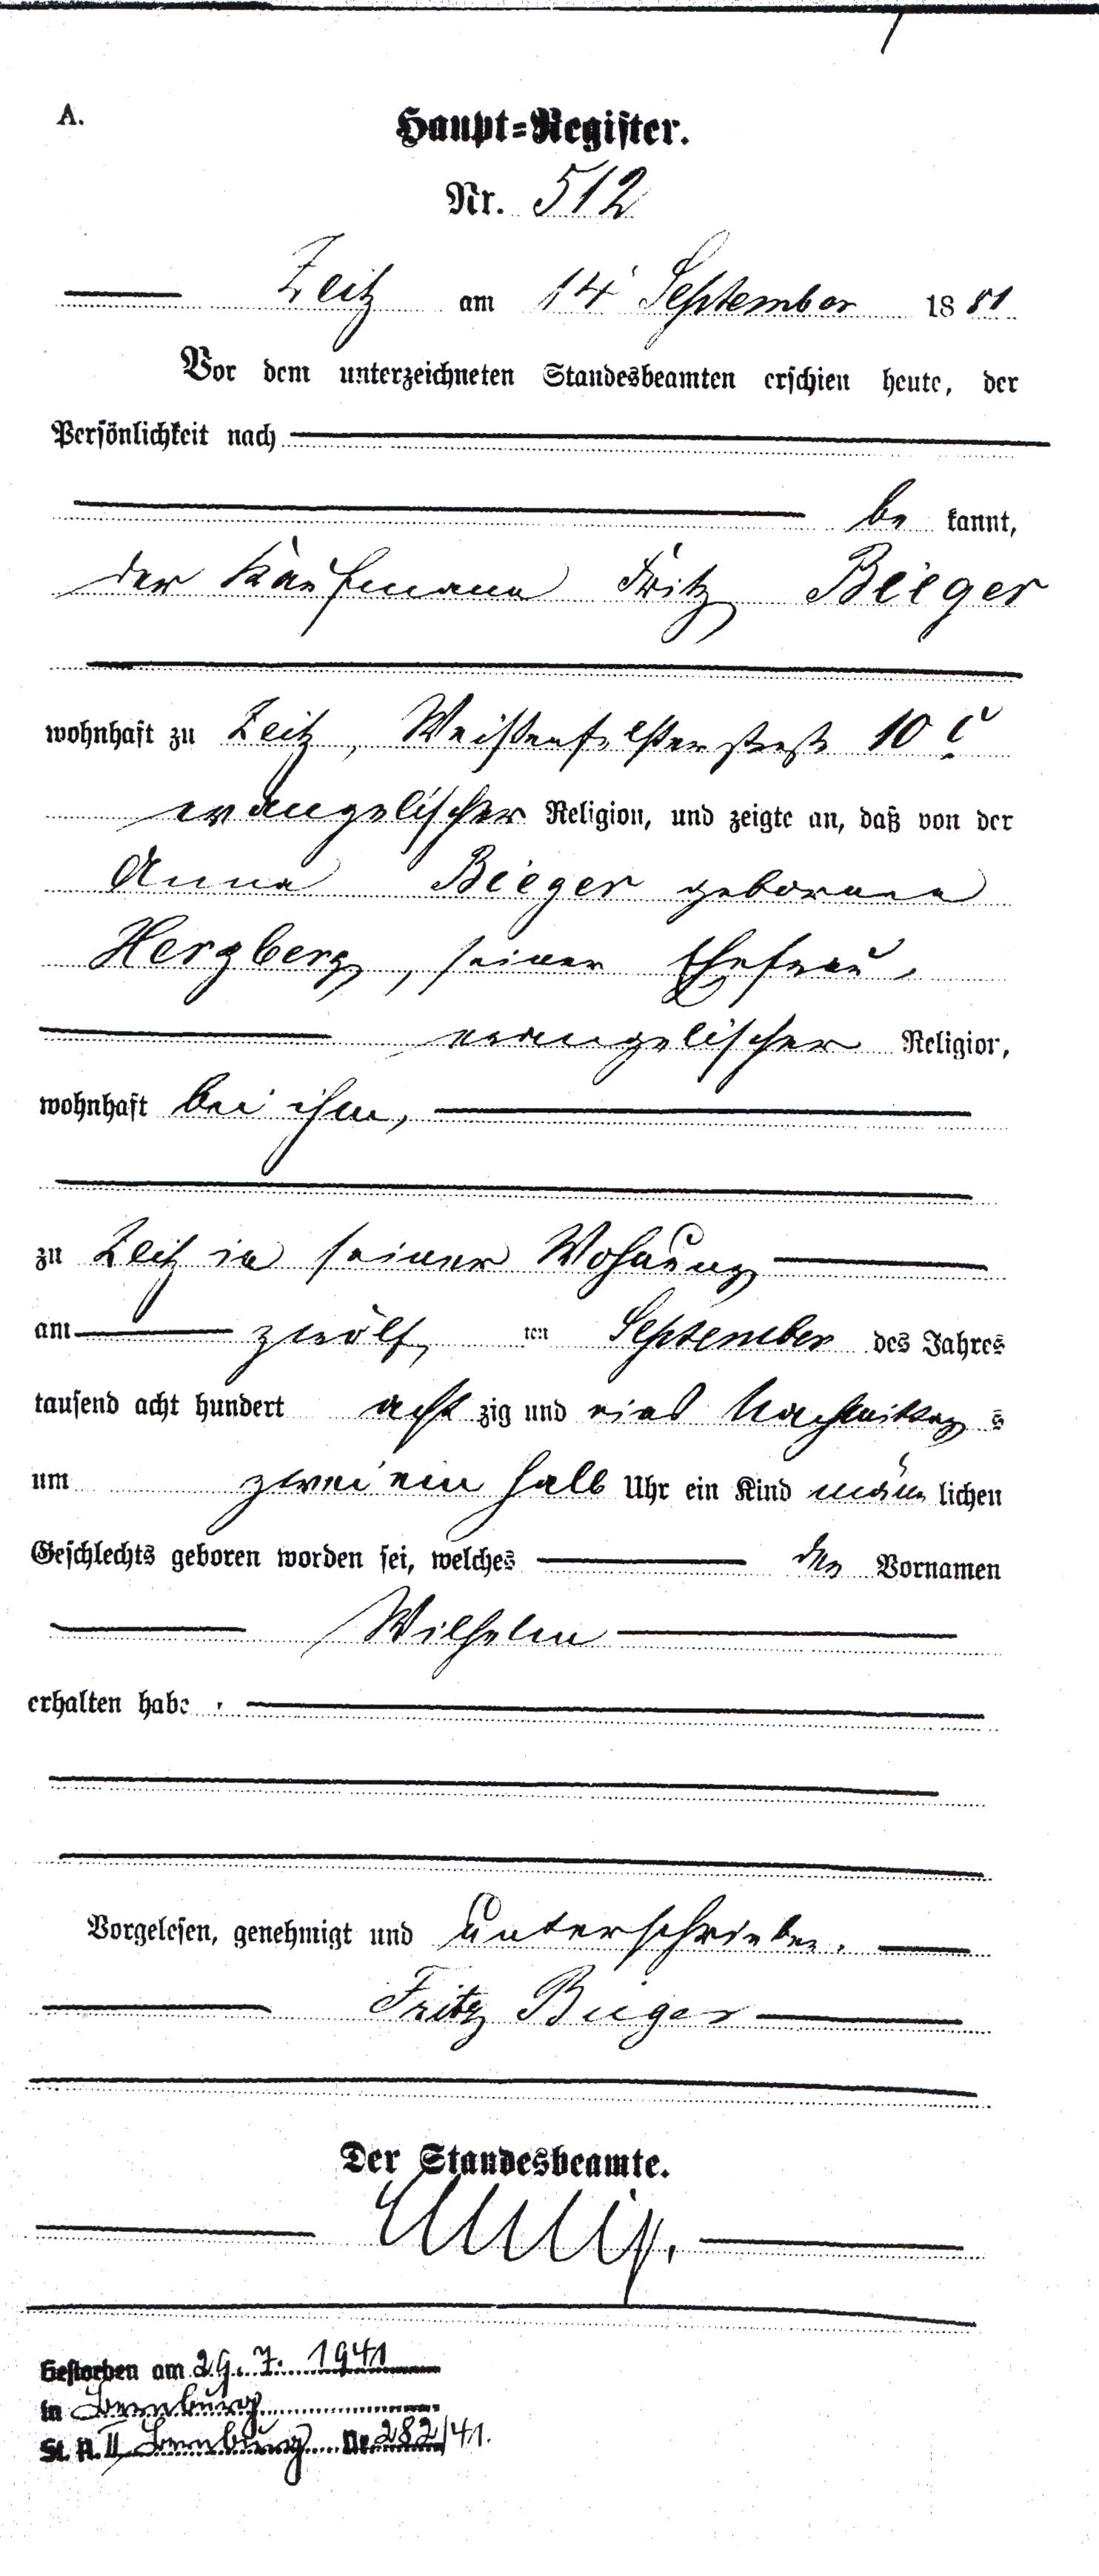 A.
Haupt=Register.
Nr. 512
Zeitz am 14 September 1881
Vor dem unterzeichneten Standesbeamten erschien heute, der
Persönlichkeit nach
be kannt,
der Kaufmann Fritz Bieger
wohnhaft zu Zeitz, Weißenfelser 10 c
evangelischer Religion, und zeigte an, daß von der
Anna Bieger geborenen
Herzberg, seiner Ehefrau,
evangelischer Religion,
wohnhaft bei ihm,
zu Zeitz in seiner Wohnung
am zwölf ten September des Jahres
tausend acht hundert acht zig und eins Nachmittag s
um zwei ein halb Uhr ein Kind männ lichen
Geschlechts geboren worden sei, welches den Vornamen
Wilhelm
erhalten habe.
Vorgelesen, genehmigt und unterschrieben.
Fritz Bieger
Der Standesbeamte.
Gestorben am 29. 7. 1941
in Bernburg
St. A. II Bernburg Nr. 282/41.